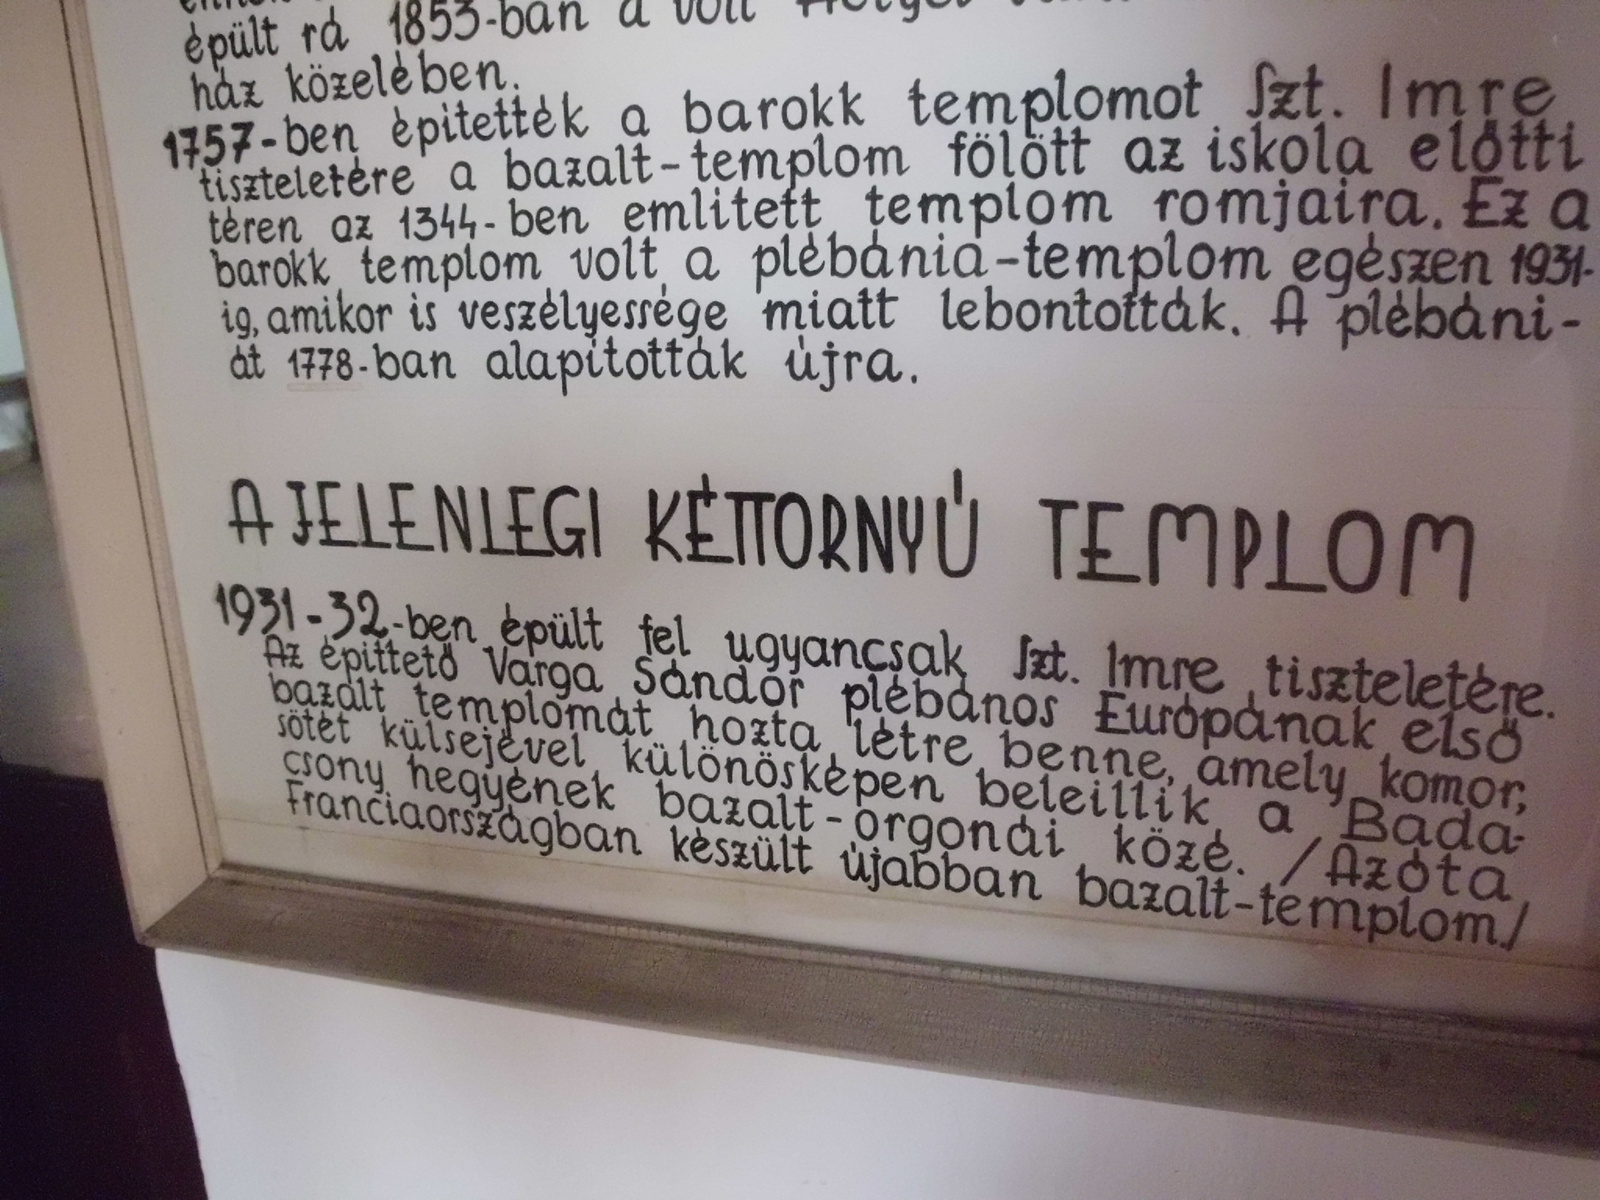 épült rá 1853-ban a volt
ház közelében.
1757-ben épitették a barokk templomot Szt. Imre
tiszteletére a bazalt-templom fölött az iskola előtti
téren az 1344-ben emlitett templom romjaira. Ez a
barokk templom volt a plébánia-templom egészen 1931-
ig, amikor is veszélyessége miatt lebontották. A plébáni-
át 1778-ban alapitották újra.
A JELENLEGI KÉTTORNYÚ TEMPLOM
1931-32-ben épült fel ugyancsak Szt. Imre tiszteletére.
Az épittető Varga Sándor plébános Európának első
bazalt templomát hozta létre benne, amely komor,
sötét külsejével különösképen beleillik a Bada-
csony hegyének bazalt-orgonái közé. /Azóta
Franciaországban készült újabban bazalt-templom/